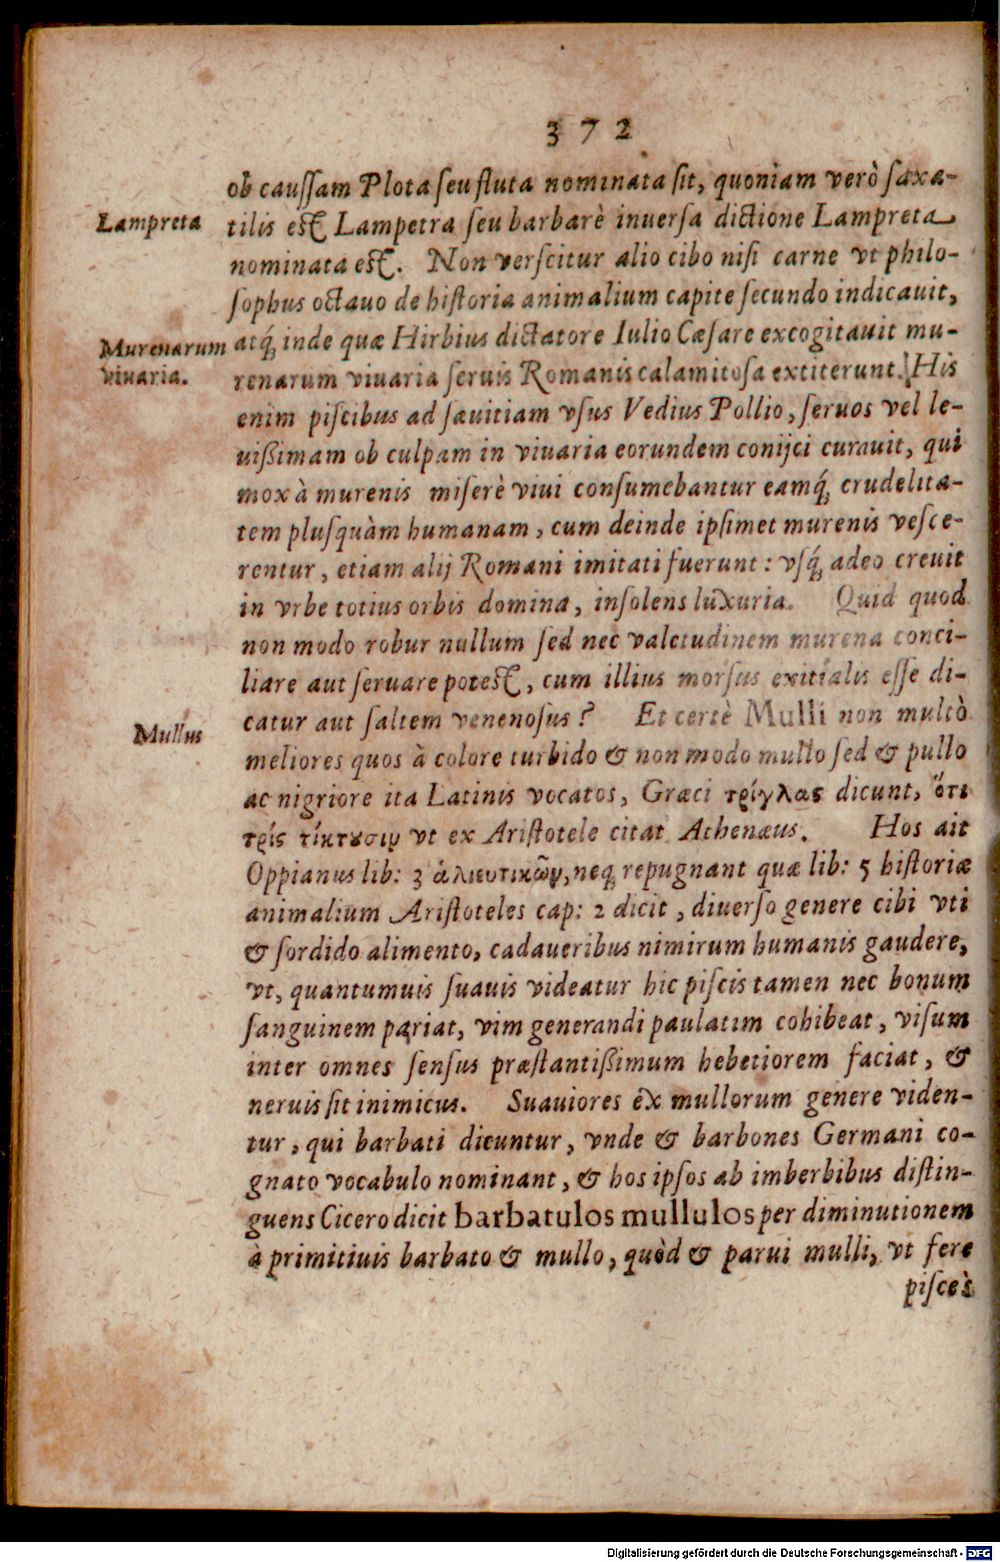 372
ob cauſſam Plota ſeu fluta nominata ſit, quoniam verò ſaxa-
Lampreta
tilis est Lampetra ſeu barbarè inuerſa dictione Lampreta
nominata est. Non verſcitur alio cibo niſi carne vt philo-
ſophus octauo de hiſtoria animalium capite ſecundo indicauit,
Murenarum viuaria.
atq́; inde quæ Hirbius dictatore Iulio Cæſare excogitauit mu-
renarum viuaria ſeruis Romanis calamitoſa extiterunt. His
enim piſcibus ad ſæuitiam vſus Vedius Pollio, ſeruos vel le-
uißimam ob culpam in viuaria eorundem conijci curauit, qui
mox à murenis miſerè viui conſumebantur eamq́; crudelita-
tem pluſquàm humanam, cum deinde ipſimet murenis veſce-
rentur, etiam alij Romani imitati fuerunt: vſq́; adeo creuit
in vrbe totius orbis domina, inſolens luxuria. Quid quod
non modo robur nullum ſed nec valetudinem murena conci-
liare aut ſeruare potest, cum illius morſus exitialis eſſe di-
Mullus
catur aut ſaltem venenoſus? Et certè Mulli non multò
meliores quos à colore turbido & non modo mullo ſed & pullo
ac nigriore ita Latinis vocatos, Græci τρίγλας dicunt, ὅτι
τρίς τίκτουσιν vt ex Ariſtotele citat Athenæus. Hos ait
Oppianus lib: 3 ἁλιευτικῶν, neq; repugnant quæ lib: 5 hiſtoriæ
animalium Ariſtoteles cap: 2 dicit, diuerſo genere cibi vti
& ſordido alimento, cadaueribus nimirum humanis gaudere,
vt, quantumuis ſuauis videatur hic piſcis tamen nec bonum
ſanguinem pariat, vim generandi paulatim cohibeat, viſum
inter omnes ſenſus præſtantißimum hebetiorem faciat, &
neruis ſit inimicus. Suauiores ex mullorum genere viden-
tur, qui barbati dicuntur, vnde & barbones Germani co-
gnato vocabulo nominant, & hos ipſos ab imberbibus diſtin-
guens Cicero dicit barbatulos mullulos per diminutionem
à primitiuis barbato & mullo, quòd & parui mulli, vt fere
piſces
Digitalisierung gefördert durch die Deutsche Forschungsgemeinschaft - DFG